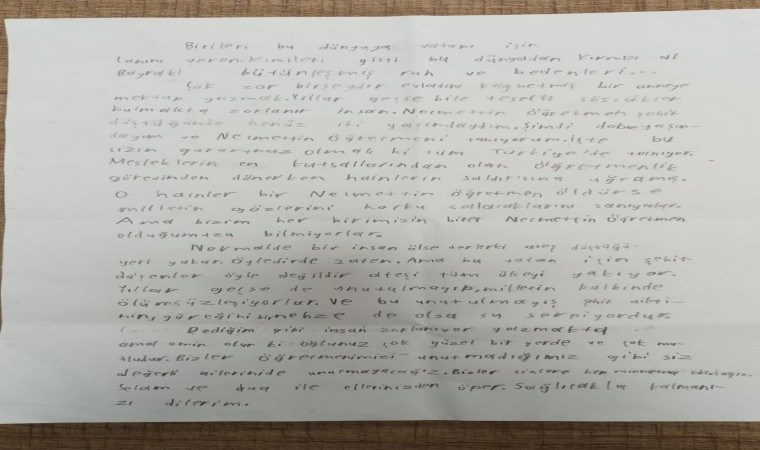 Birileri bu dünyaya vatanı için
canını veren kimileri gibi bu dünyadan kırmızı al
Bayrakl bütünleşmiş ruh ve bedenleri...
Çok zor birşeydir evladını kaybetmiş bir anneye
mektup yazmak. Yıllar geçse bile teselli sözcükler
bulmakta zorlanır insan. Necmettin Öğretmen şehit
düştüğünde henüz iki yaşındaydım. Şimdi
dayım ve Necmettin Öğretmeni tanıyorum. İşte bu
sizin gururunuz olmalı ki tüm Türkiye'de tanıyor.
Mesleklerin en kutsallarından olan Öğretmenlik
görevinden dönerken hainlerin saldırısına uğramış.
O hainler bir Necmettin öğretmen öldürse
milletin gözlerini korku sanıyorlar.
Ama bizim her birimizin birer Necmettin Öğretmen
olduğumuzu bilmiyorlar.
Normalde bir insan ölse derlerki ateş düştüğü
yeri yakar. Öyledirde zaten. Ama bu vatan için şehit
düşenler öyle değildir ateşi tüm ülkeyi yakıyor.
Yıllar geçse de unutulmayıp, milletin kalbinde
ölümsüzleşiyorlar. Ve bu unutulmayış şehit aileri-
nin yüreğini bir nebze de olsa su serpiyordur.
Dediğim gibi insan zorlanıyor yazmakta
ama emin olun ki oğlunuz çok güzel bir yerde ve çok mu-
tludur. Bizler öğretmenimizi unutmadığımız gibi siz
değerli ailerinide unutmayacağız. Bizler sizlere hep minnettar
Selam ve dua ile ellerinizden öper. Sağlıcakla kalmanı-
zı dilerim.